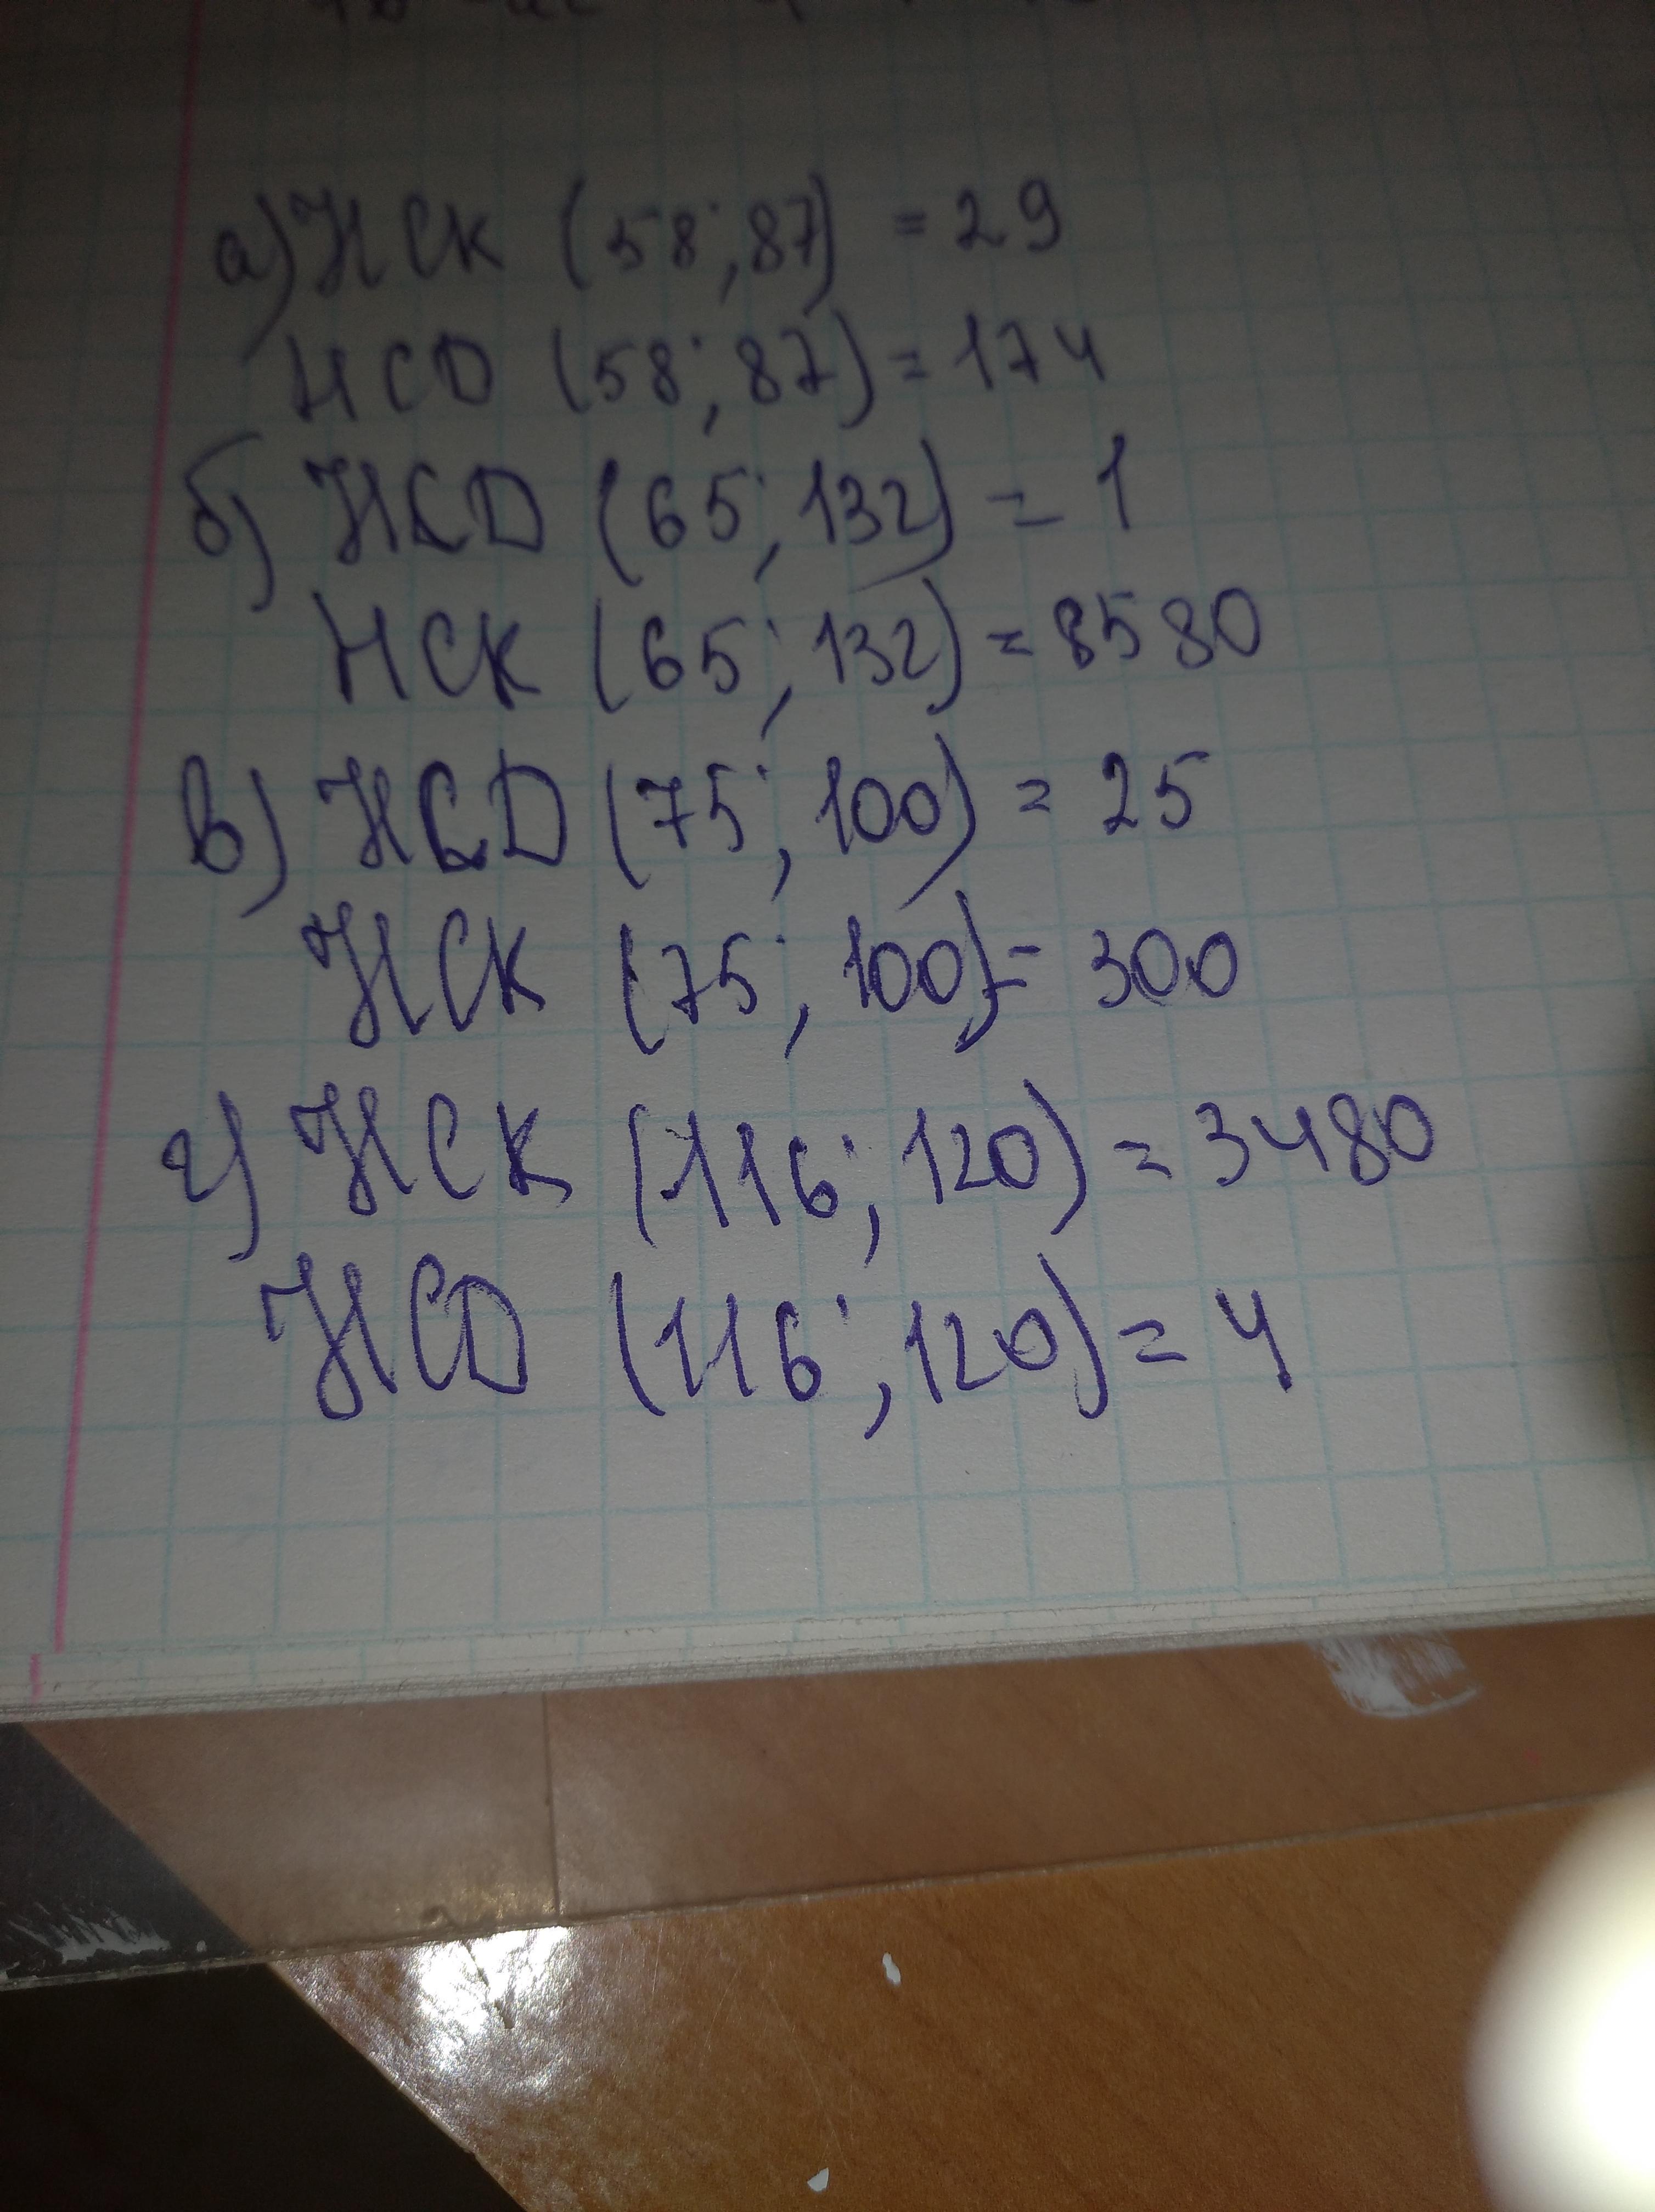 а) НСК (58; 87) = 29
НСD (58; 87) = 174
б) НСD (65; 132) = 1
НСК (65; 132) = 8580
в) НСD (75; 100) = 25
НСК (75; 100) = 300
г) НСК (116; 120) = 3480
НСD (116; 120) = 4